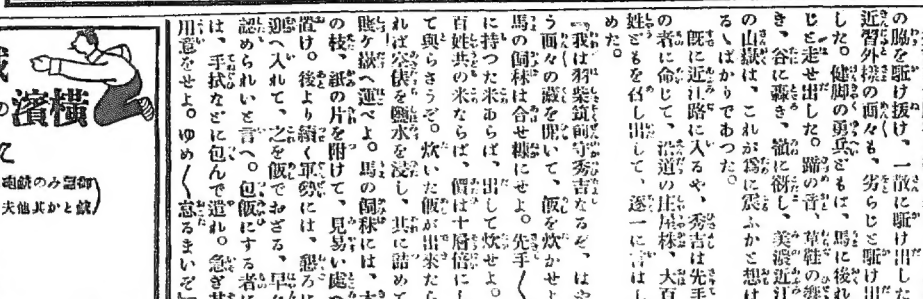 の脇を駈け抜け、一散に駈け出した
近習外様の面々も、劣らじと駈け出
した。健脚の勇兵どもは、馬に後れ
じと走せ出した。蹄の音、草鞋の響
き、谷に轟き、嶺に谺し、美濃近江
の山嶽は、これが爲に震ふかと想は
るゝばかりであつた。
既に近江路に入るや、秀吉は先手
の者に命じて、沿道の庄屋株、大百
姓どもを召し出して、逐一に言はし
めた。
『我は羽柴筑前守秀吉なるぞ、はや
う面々の藏を開いて、飯を炊かせよ
馬の飼秣は合せ糠にせよ。先手〱
に持つた米あらば、出して炊せよ。
百姓共の米ならば、價は十層倍にし
て與らさうぞ。炊いた飯が出來たら
れば空俵を鹽水を浸し、其に詰めて
賤ヶ嶽へ運べよ。馬の飼秣には、大
の枝、紙の片を附けて、見易い處へ
置け。後より續く軍勢には、懇ろに
迎へ入れて、之を飯でおざる、早々
認められいと言へ。包飯にする者に
は、手拭などに包んで遣れ。急ぎ其
用意をせよ。ゆめ〱忘るまいぞ』
横濱の
砲銃のみ
天他其かと